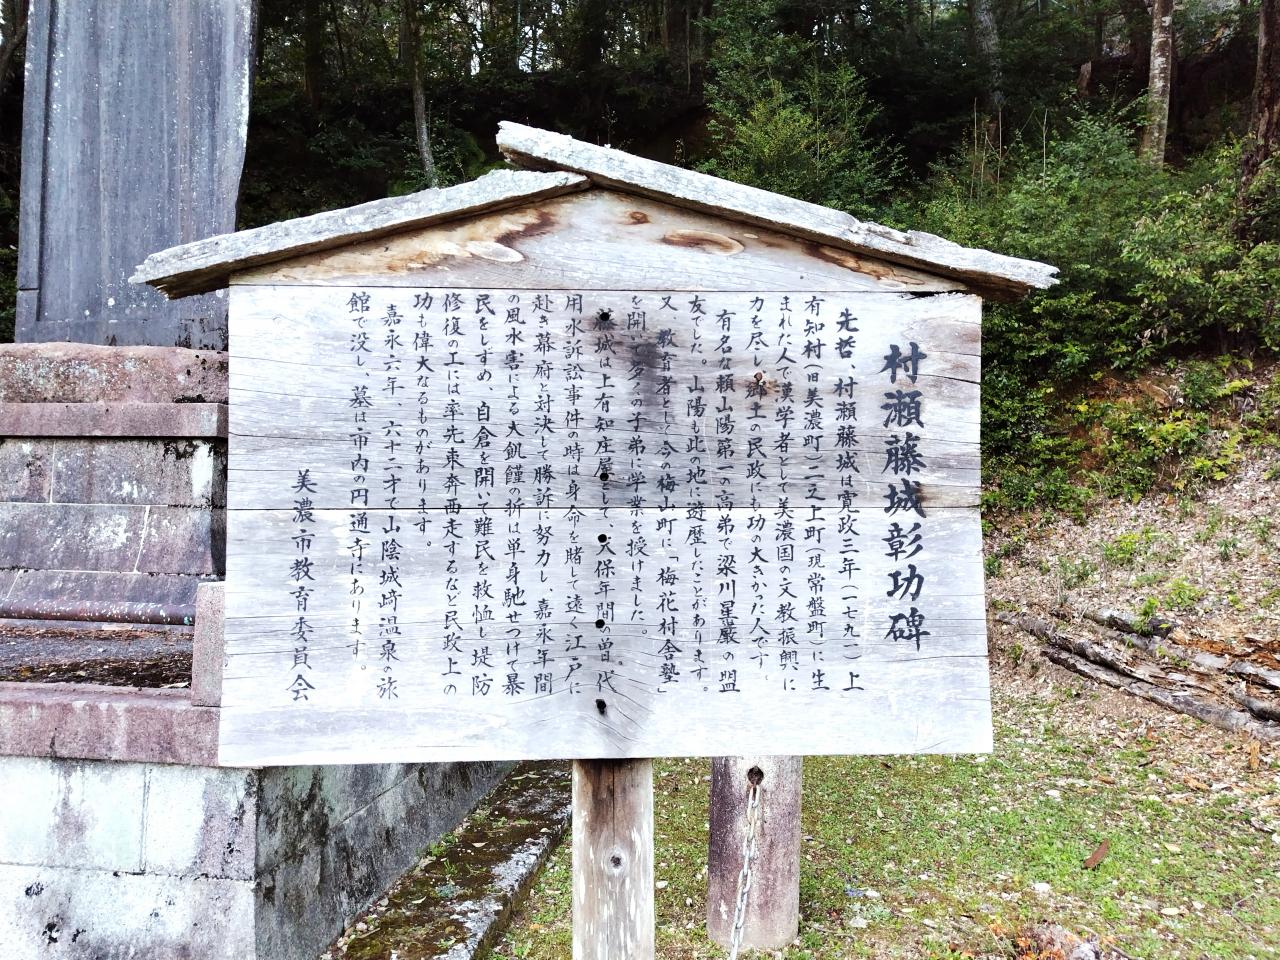 村瀬藤城彰功碑
先哲、村瀬藤城は寛政三年(一七九一)上
有知村(旧美濃町)二之上町(現常盤町)に生
まれた人で漢学者として美濃国の文教振興に
力を尽し郷土の民政にも功の大きかった人です、
有名な頼山陽第一の高弟で梁川星巌の盟
友でした。山陽も此の地に遊歴したことがあります。
又 教育者として今の梅山町に「梅花村舎塾」
を開いて多くの子弟に学業を授けました。
藤城は上有知庄屋として、天保年間の曽代
用水訴訟事件の時は身命を賭して遠く江戸に
赴き幕府と対決して勝訴に努力し、嘉永年間
の風水害による大飢饉の折は単身馳せつけて暴
民をしずめ、自倉を開いて難民を救恤し堤防
修復の工には率先東奔西走するなど民政上の
功も偉大なるものがあります。
嘉永六年、六十二才で山陰城崎温泉の旅
館で没し、墓は市内の円通寺にあります。
美濃市教育委員会